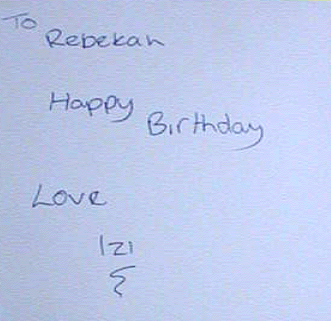 To Rebekah
Happy Birthday
Love
Izi